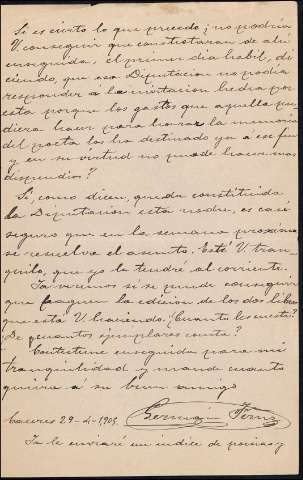 Si es cierto lo que precede ¿no podría
V. conseguir que contestaran de ahí
enseguida, el primer día hábil, di-
ciendo, que esa Diputación no podía
responder á la invitación hecha por
esta porque los gastos que aquella pu-
diera hacer para honrar la memoria
del poeta los ha destinado ya á ese fin
y en su virtud no puede hacer mas
dispendios?
Si, como dicen, queda constituida
la Diputación esta noche, es casi
seguro que en la semana próxima
se resuelve el asunto. Esté V. tran-
quilo, que yo le tendré al corriente.
Ya veremos si se puede conseguir
que paguen la edición de los dos libros
que está V. haciendo. ¿Cuanto le cuesta?
¿De cuantos ejemplares consta?
Contésteme enseguida para mi
tranquilidad y mande cuanto
quiera á su buen amigo
Cáceres 29-4-1905.
Ya le enviaré un indice de poesias y